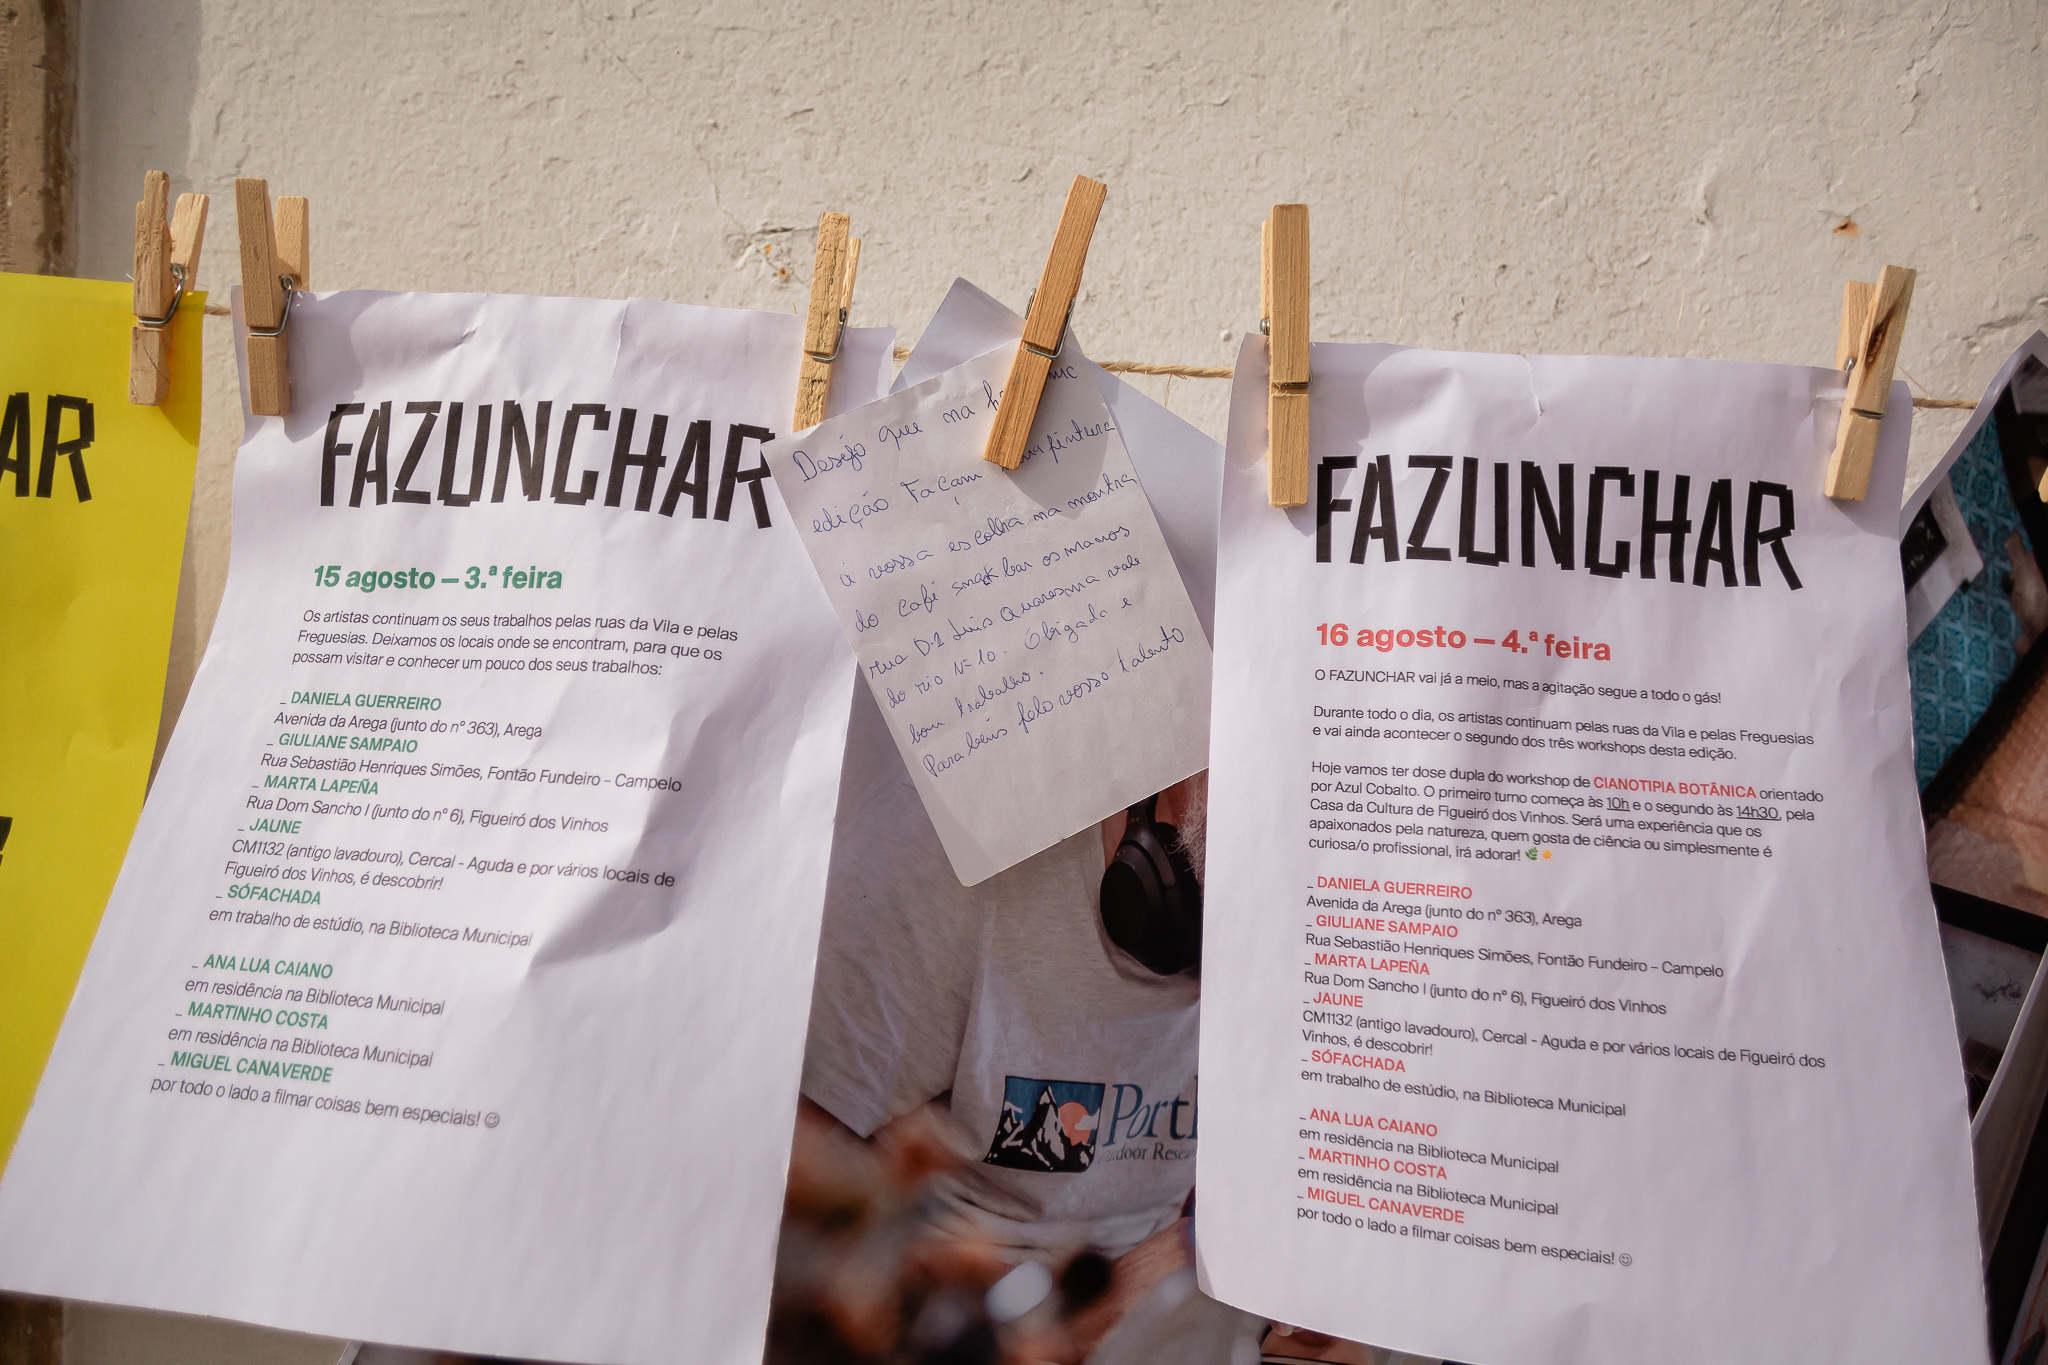 AR
FAZUNCHAR
15 agosto – 3.ª feira
Os artistas continuam os seus trabalhos pelas ruas da Vila e pelas
Freguesias. Deixamos os locais onde se encontram, para que os
possam visitar e conhecer um pouco dos seus trabalhos:
_ DANIELA GUERREIRO
Avenida da Arega (junto do nº 363), Arega
_ GIULIANE SAMPAIO
Rua Sebastião Henriques Simões, Fontão Fundeiro – Campelo
_ MARTA LAPEÑA
Rua Dom Sancho I (junto do nº 6), Figueiró dos Vinhos
_ JAUNE
CM1132 (antigo lavadouro), Cercal - Aguda e por vários locais de
Figueiró dos Vinhos, é descobrir!
_ SÓFACHADA
em trabalho de estúdio, na Biblioteca Municipal
_ ANA LUA CAIANO
em residência na Biblioteca Municipal
_ MARTINHO COSTA
em residência na Biblioteca Municipal
_ MIGUEL CANAVERDE
por todo o lado a filmar coisas bem especiais! ☺
Desejo que na
edição Façam pintura
á vossa escolha na montra
do café snack bar os manos
rua D.2 Luis Quaresma vale
do rio Nº 10. Obrigada e
bom trabalho.
Parabéns pelo vosso talento
Portl
utdoor Resea
FAZUNCHAR
16 agosto – 4.ª feira
O FAZUNCHAR vai já a meio, mas a agitação segue a todo o gás!
Durante todo o dia, os artistas continuam pelas ruas da Vila e pelas Freguesias
e vai ainda acontecer o segundo dos três workshops desta edição.
Hoje vamos ter dose dupla do workshop de CIANOTIPIA BOTÂNICA orientado
por Azul Cobalto. O primeiro turno começa às 10h e o segundo às 14h30, pela
Casa da Cultura de Figueiró dos Vinhos. Será uma experiência que os
apaixonados pela natureza, quem gosta de ciência ou simplesmente é
curiosa/o profissional, irá adorar! 🌿☀️
_ DANIELA GUERREIRO
Avenida da Arega (junto do nº 363), Arega
_ GIULIANE SAMPAIO
Rua Sebastião Henriques Simões, Fontão Fundeiro – Campelo
_ MARTA LAPEÑA
Rua Dom Sancho I (junto do nº 6), Figueiró dos Vinhos
_ JAUNE
CM1132 (antigo lavadouro), Cercal - Aguda e por vários locais de Figueiró dos
Vinhos, é descobrir!
_ SÓFACHADA
em trabalho de estúdio, na Biblioteca Municipal
_ ANA LUA CAIANO
em residência na Biblioteca Municipal
_ MARTINHO COSTA
em residência na Biblioteca Municipal
_ MIGUEL CANAVERDE
por todo o lado a filmar coisas bem especiais! ☺